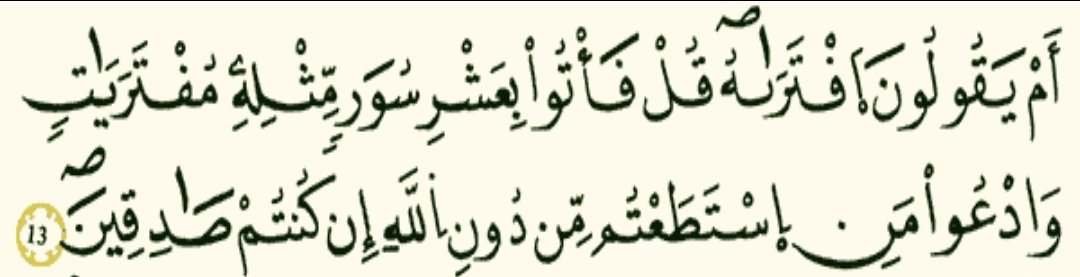 أَمْ يَقُولُونَ اَ۪فْتَر۪ىٰهُۖ قُلْ فَأْتُواْ بِعَشْرِ سُوَرٖ مِّثْلِهِۦ مُفْتَرَيَٰتٖ
وَادْعُواْ مَنِ اِ۪سْتَطَعْتُم مِّن دُونِ اِ۬للَّهِ إِن كُنتُمْ صَٰدِقِينَۖ 13